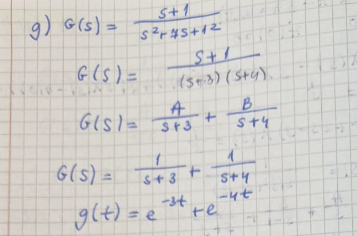 g) G(s) = s+1 / s²+7s+12
G(s) = s+1 / (s+3)(s+4)
G(s) = A / s+3 + B / s+4
G(s) = 1 / s+3 + 1 / s+4
g(t) = e^-3t + e^-4t